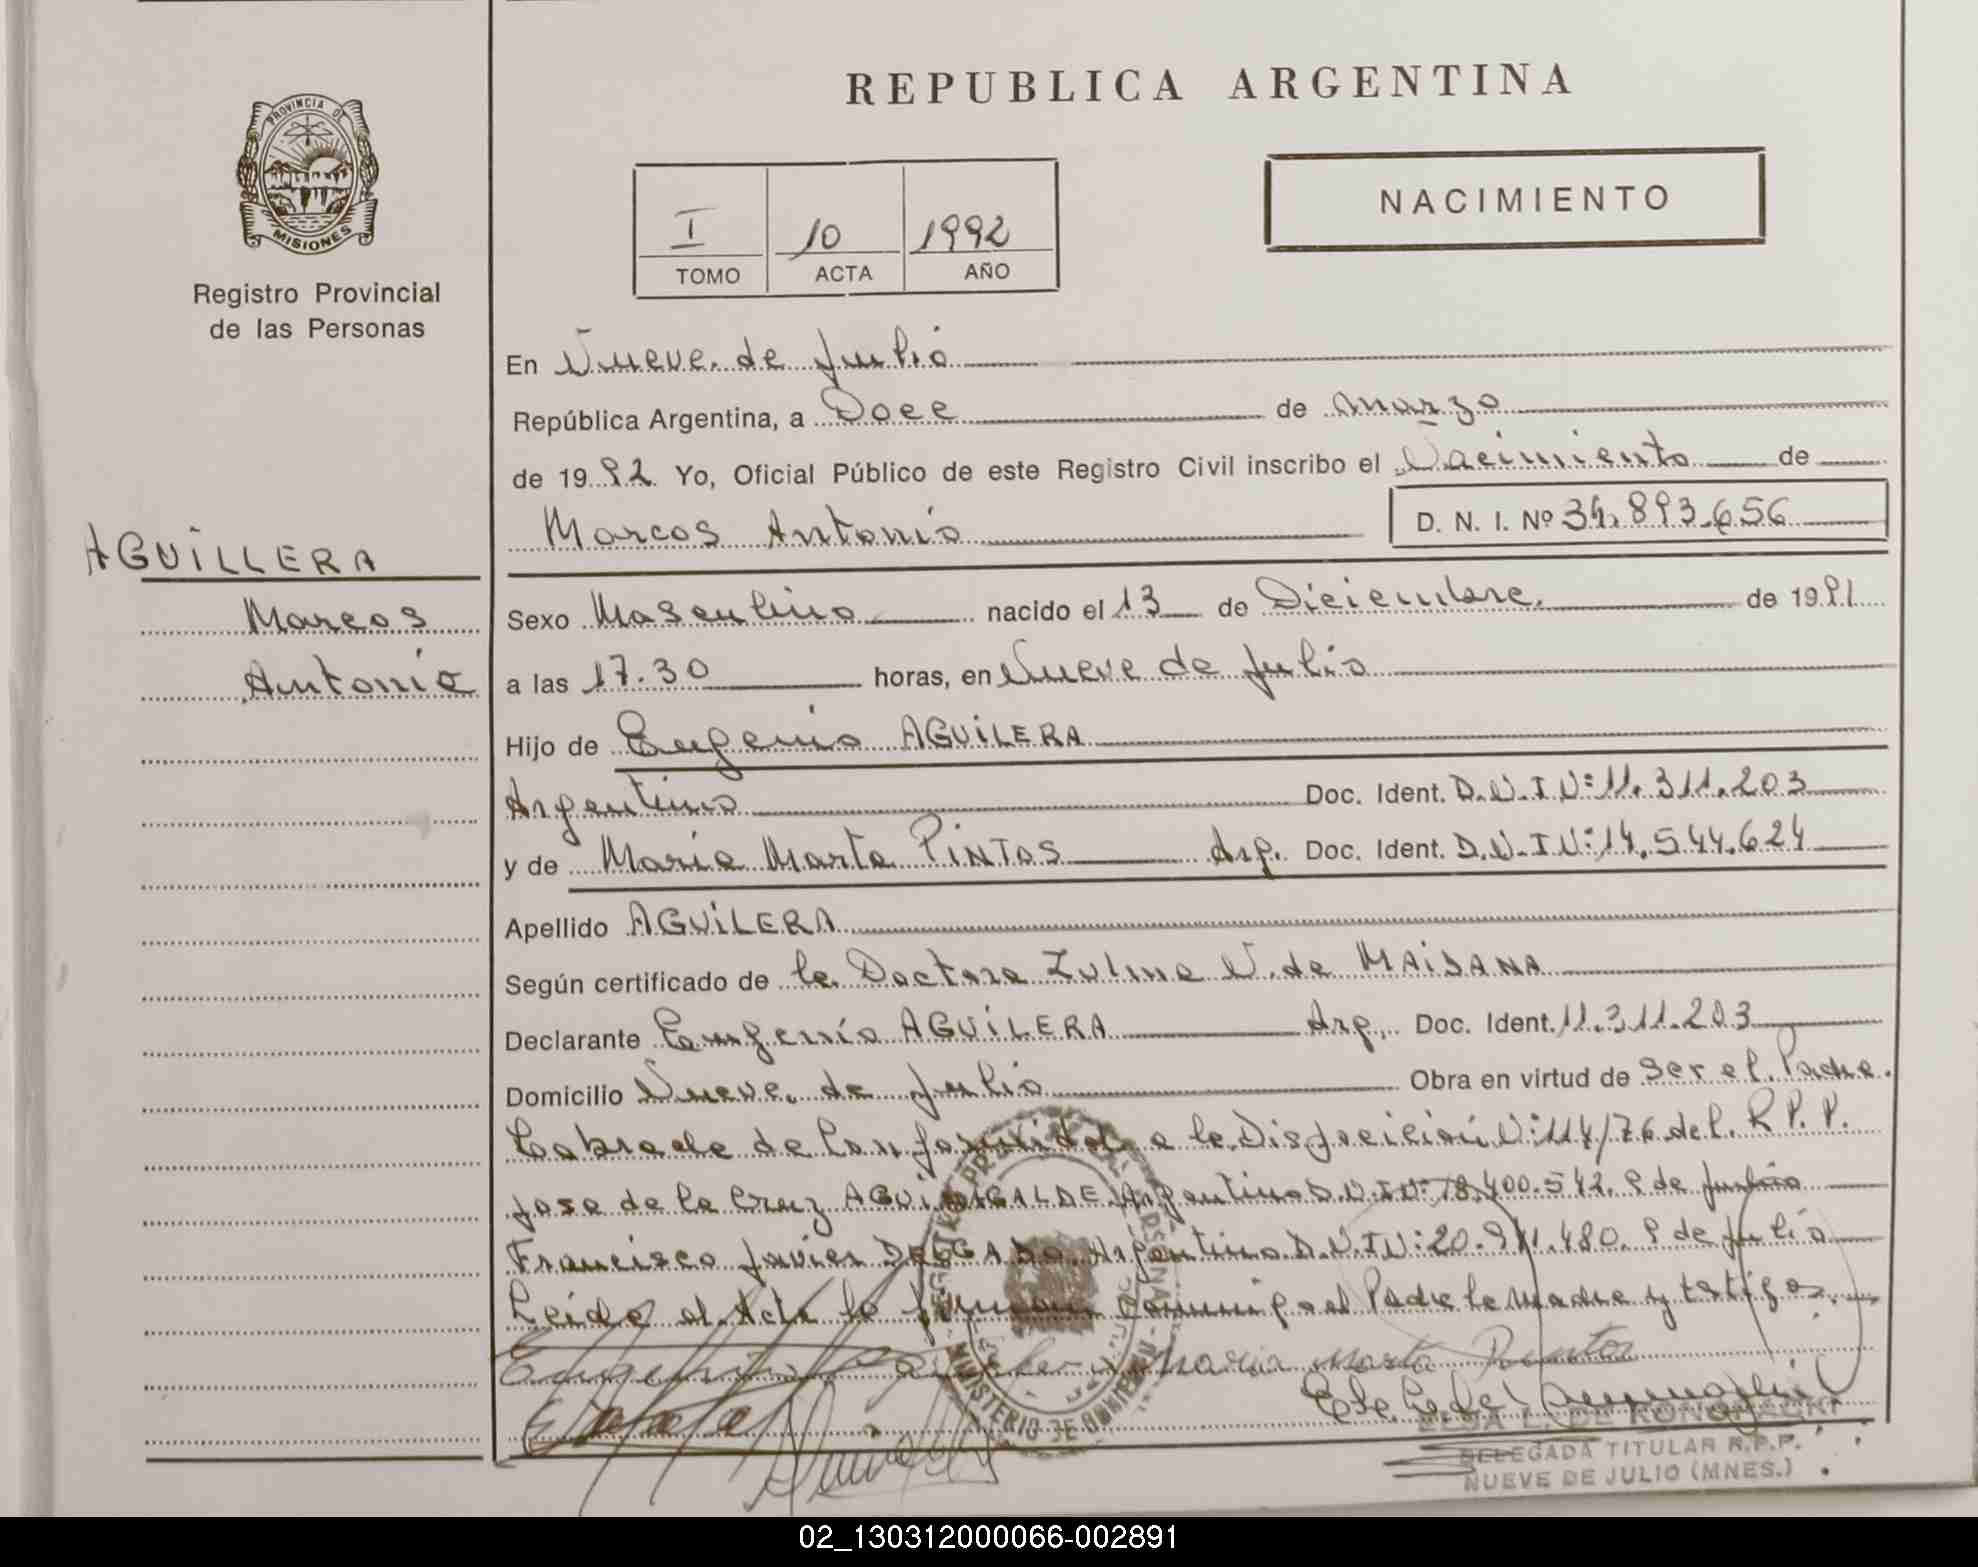 REPUBLICA ARGENTINA
PROVINCIA DE
MISIONES
Registro Provincial
de las Personas
I 10 1992
TOMO ACTA AÑO
NACIMIENTO
En Nueve de Julio
República Argentina, a Doce de marzo
de 1992 Yo, Oficial Público de este Registro Civil inscribo el Nacimiento de
Marcos Antonio D. N. I. Nº 34.893.656
AGUILLERA
Marcos
Antonio
Sexo Masculino nacido el 13 de Diciembre de 1991
a las 17.30 horas, en Nueve de Julio
Hijo de Eugenio AGUILERA
Argentino Doc. Ident. D.N.I N: 11.311.203
y de María Marta PINTOS Arg. Doc. Ident. D.N.I N: 14.544.624
Apellido AGUILERA
Según certificado de la Doctora Zulma N. de MAIDANA
Declarante Eugenio AGUILERA Arg. Doc. Ident. 11.311.203
Domicilio Nueve de Julio Obra en virtud de ser el Padre.
Labrada de Conformidad a la Disposición N: 114/76 del R.P.P.
Jose de la Cruz Argentino D.N.I N: 18.400.542. 9 de Julio
Francisco Javier DELGADO Argentino D.N.I N: 20.911.480. 9 de Julio
Leida el Acta la firman conmigo el Padre la madre y testigos.
Maria Marta Pintos
ELSA L. DE
DELEGADA TITULAR R.P.P.
NUEVE DE JULIO (MNES.)
02_130312000066-002891